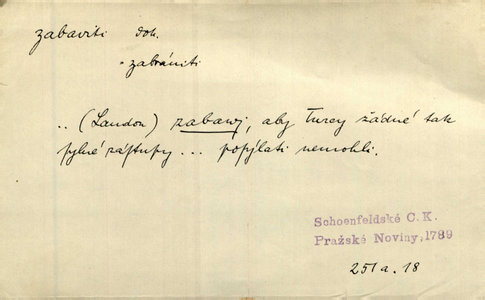 zabaviti dok.
= zabrániti
.. (Laudon) zabawj, aby Turcy žádné tak
pylné záſtupy ... popſylati nemohli.
Schoenfeldské C. K.
Pražské Noviny, 1789
251a. 18